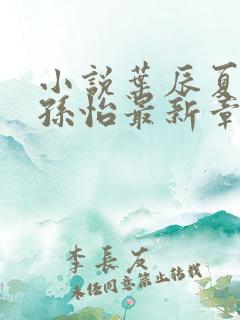 小說葉辰夏
孫怡最新章
李長友
未经同意禁止转载